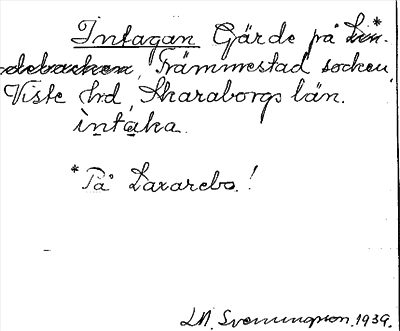 Intagan Gärde på Lin-*
debacken, Främmestad socken,
Viste hrd, Skaraborgs län.
ìntáka.
*På Laxarebo!
LM. Svenungsson. 1939.